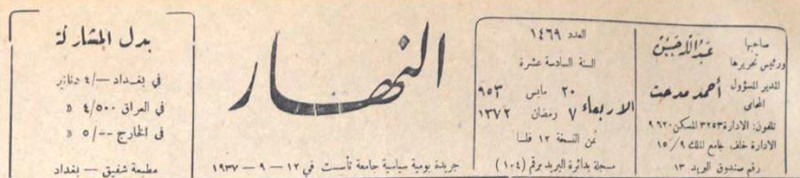 صاحبها
ورئيس تحريرها عبد الله حسن
المدير المسؤول
المحامي أحمد مدحت
تلفون: الادارة ٣٢٥٣ المسكن ٩٦٢٠
الادارة خلف جامع الملك ١٥/٩
رقم صندوق البريد ١٣
العدد ١٤٦٩
السنة السادسة عشرة
الاربعاء
٢٠ مايس ٩٥٣
٧ رمضان ١٣٧٢
ثمن النسخة ١٢ فلسا
مسجلة بدائرة البريد برقم (١٠٤)
النهار
جريدة يومية سياسية جامعة تأسست في ١٢ - ٩ - ١٩٣٧
بدل المشاركة
في بغداد ٤/- دنانير
في العراق ٤/٥٠٠ »
في الخارج ٥/-- »
مطبعة شفيق - بغداد